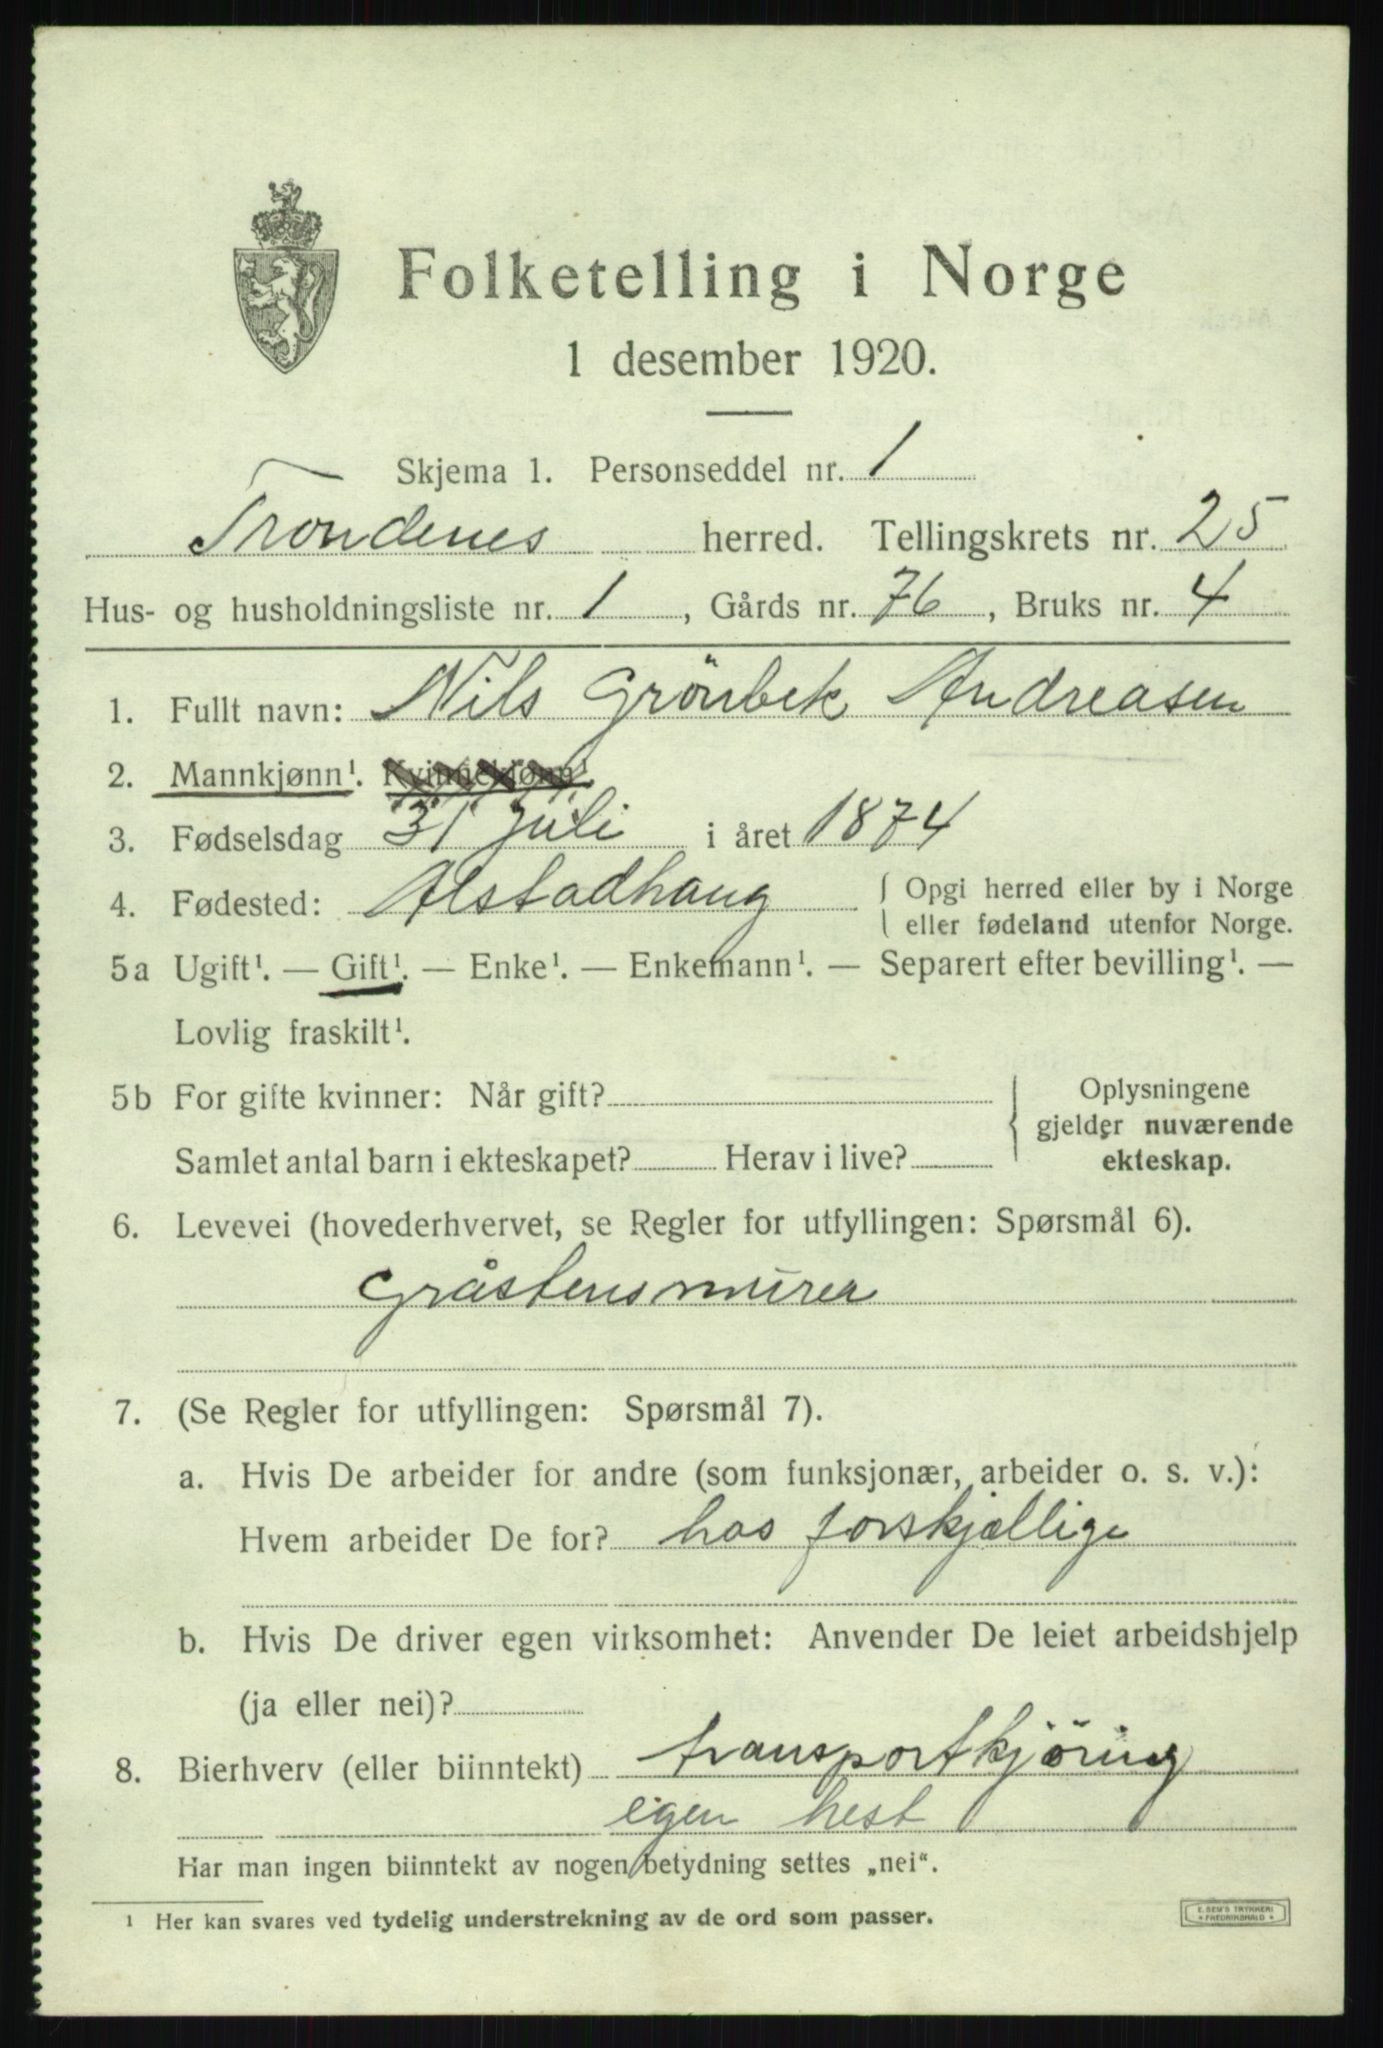 Folketelling i Norge
1 desember 1920.
Skjema 1. Personseddel nr. 1
Trondenes herred. Tellingskrets nr. 25
Hus- og husholdningsliste nr. 1, Gårds nr. 76, Bruks nr. 4
1. Fullt navn: Nils Grönbek Andreasen
2. Mannkjønn¹. Kvinnekjønn¹.
3. Fødselsdag 31 juli i året 1874
4. Fødested: Alstadhaug { Opgi herred eller by i Norge
eller fødeland utenfor Norge.
5a Ugift¹. — Gift¹. — Enke¹. — Enkemann¹. — Separert efter bevilling¹. —
Lovlig fraskilt¹.
5b For gifte kvinner: Når gift? Oplysningene
gjelder nuværende
Samlet antal barn i ekteskapet? Herav i live? ekteskap.
6. Levevei (hovederhvervet, se Regler for utfyllingen: Spørsmål 6).
Gråstensmurer
7. (Se Regler for utfyllingen: Spørsmål 7).
a. Hvis De arbeider for andre (som funksjonær, arbeider o. s. v.):
Hvem arbeider De for? hos forskjællige
b. Hvis De driver egen virksomhet: Anvender De leiet arbeidshjelp
(ja eller nei)?
8. Bierhverv (eller biinntekt) transportkjöring
egen hest
Har man ingen biinntekt av nogen betydning settes „nei“.
¹ Her kan svares ved tydelig understrekning av de ord som passer.
E. SEM'S TRYKKERI
* FREDRIKSHALD *